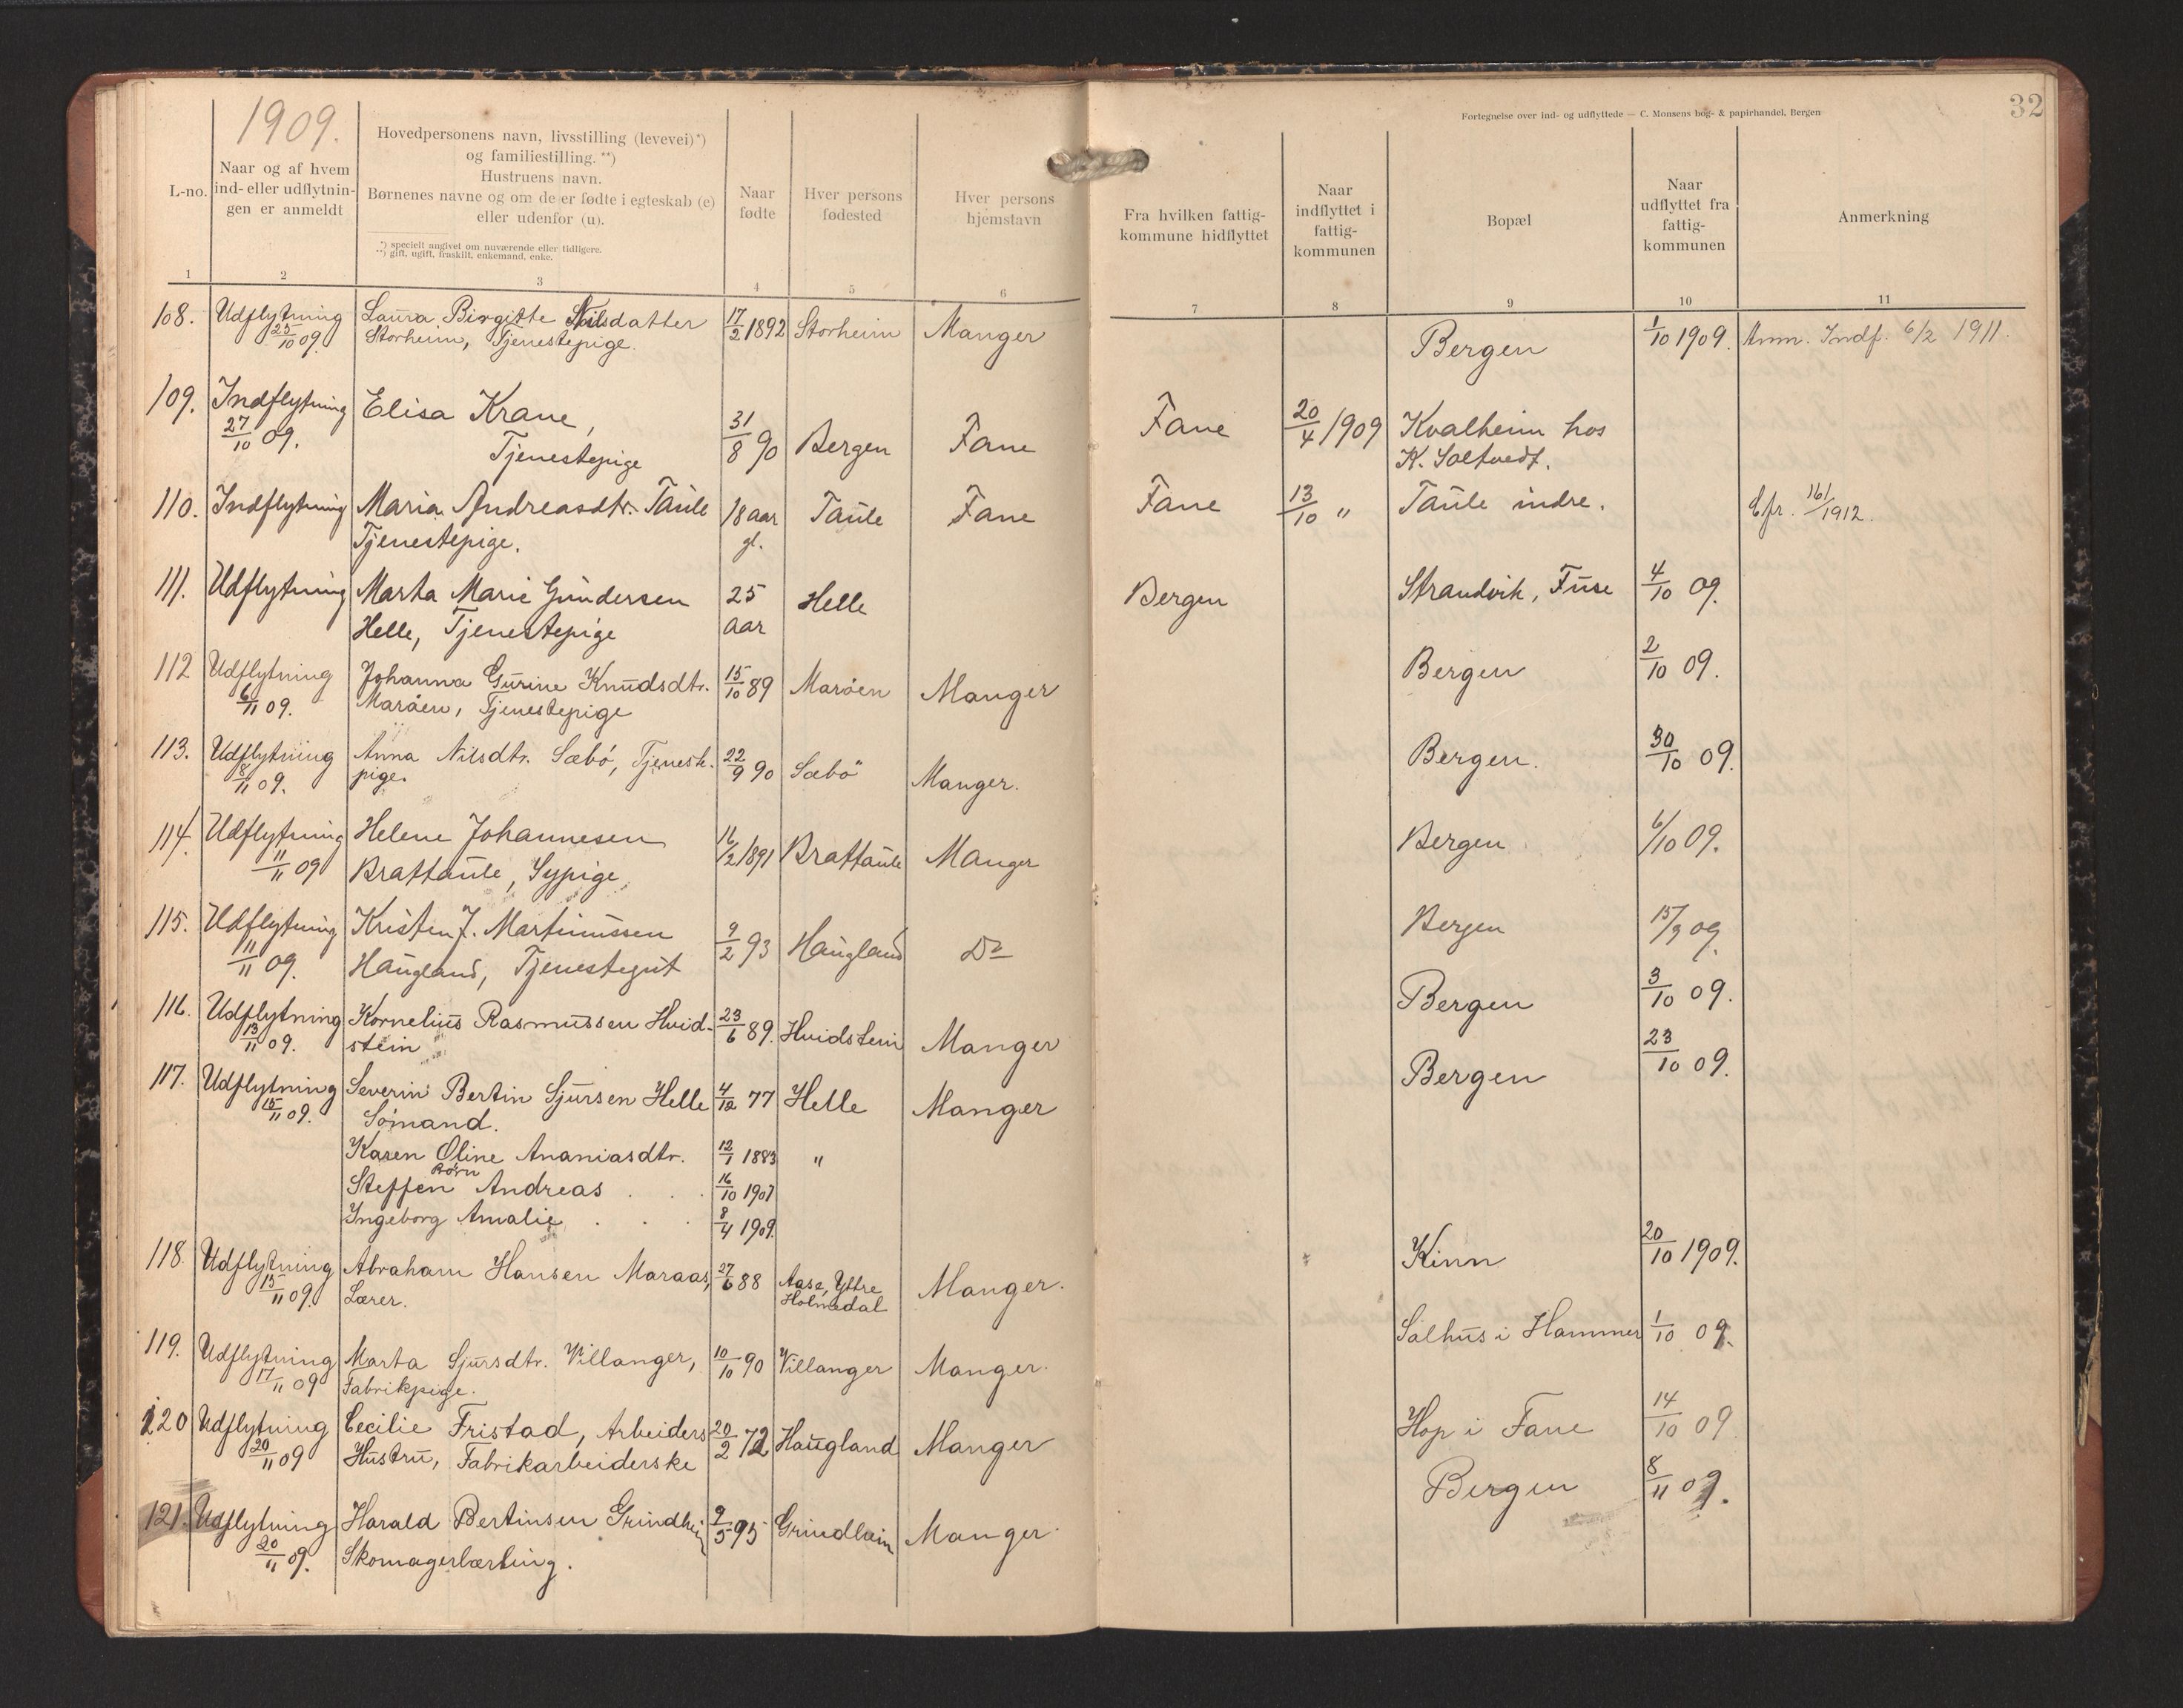 1909.
L-no.
Naar og af hvem
ind- eller udflytnin-
gen er anmeldt
Hovedpersonens navn, livsstilling (levevei)*)
og familiestilling. **)
Hustruens navn.
Børnenes navne og om de er fødte i egteskab (e)
eller udenfor (u).
*) specielt angivet om nuværende eller tidligere.
**) gift, ugift, fraskilt, enkemand, enke.
Naar
fødte
Hver persons
fødested
Hver persons
hjemstavn
1 2 3 4 5 6
Fortegnelse over ind- og udflyttede — C. Monsens bog- & papirhandel, Bergen
32
Fra hvilken fattig-
kommune hidflyttet
Naar
indflyttet i
fattig-
kommunen
Bopæl
Naar
udflyttet fra
fattig-
kommunen
Anmerkning
7 8 9 10 11
108. Udflytning Laura Birgitte Nilsdatter 17/2 1892 Storheim Manger Bergen 1/10 1909. Anm. Indf. 6/2 1911.
25/10 09. Storheim, Tjenestepige.
109. Indflytning Elisa Krane, 31/8 90 Bergen Fane Fane 20/4 1909 Kvalheim hos
27/10 09. Tjenestepige K. Soltvedt.
110. Indflytning Maria Andreasdtr. Taule 18 aar Taule Fane Fane 13/10 " Taule indre. Cfr. 16/1 1912.
Tjenestepige. gl.
111. Udflytning Marta Marie Gundersen 25 Helle Bergen Strandvik, Fuse 4/10 09.
Helle, Tjenestepige aar
112 Udflytning Johanna Gurine Knudsdtr. 15/10 89 Marøen Manger Bergen 2/10 09.
6/11 09. Marøen, Tjenestepige
113. Udflytning Anna Nilsdtr. Sæbø, Tjeneste- 22/9 90 Sæbø Manger. Bergen. 30/10 09.
8/11 09. pige.
114. Udflytning Helene Johannesen 16/2 1891 Brattaule Manger Bergen 6/10 09.
11/11 09 Brattaule, Sypige
115. Udflytning Kristen J. Martinussen 9/2 93 Haugland Do Bergen 15/9 09.
11/11 09. Haugland, Tjenestegut
116. Udflytning Kornelius Rasmussen Hvid- 23/6 89. Hvidstein Manger Bergen 3/10 09.
13/11 09. stein
117. Udflytning Severin Bertin Sjursen Helle 4/12 77 Helle Manger Bergen 23/10 09.
15/11 09. Sømand.
Karen Oline Ananiasdtr. 12/1 1883 "
Børn
Steffen Andreas . . . 16/10 1907
Ingeborg Amalie . . . 8/4 1909.
118. Udflytning Abraham Hansen Maraas, 27/6 88 Aase, Yttre Manger. Kinn 20/10 1909.
15/11 09. Lærer. Holmedal
119. Udflytning Marta Sjursdtr. Villanger, 10/10 90 Villanger Manger. Salhus i Hammer 1/10 09.
17/11 09 Fabrikpige.
120 Udflytning Cecilie Fristad, Arbeiders 20/2 72 Haugland Manger Hop i Fane 14/10 09
20/11 09 Hustru, Fabrikarbeiderske
121. Udflytning Harald Bertinsen Grindheim 9/5 95 Grindheim Manger. Bergen 8/11 09.
20/11 09. Skomagerlærling.